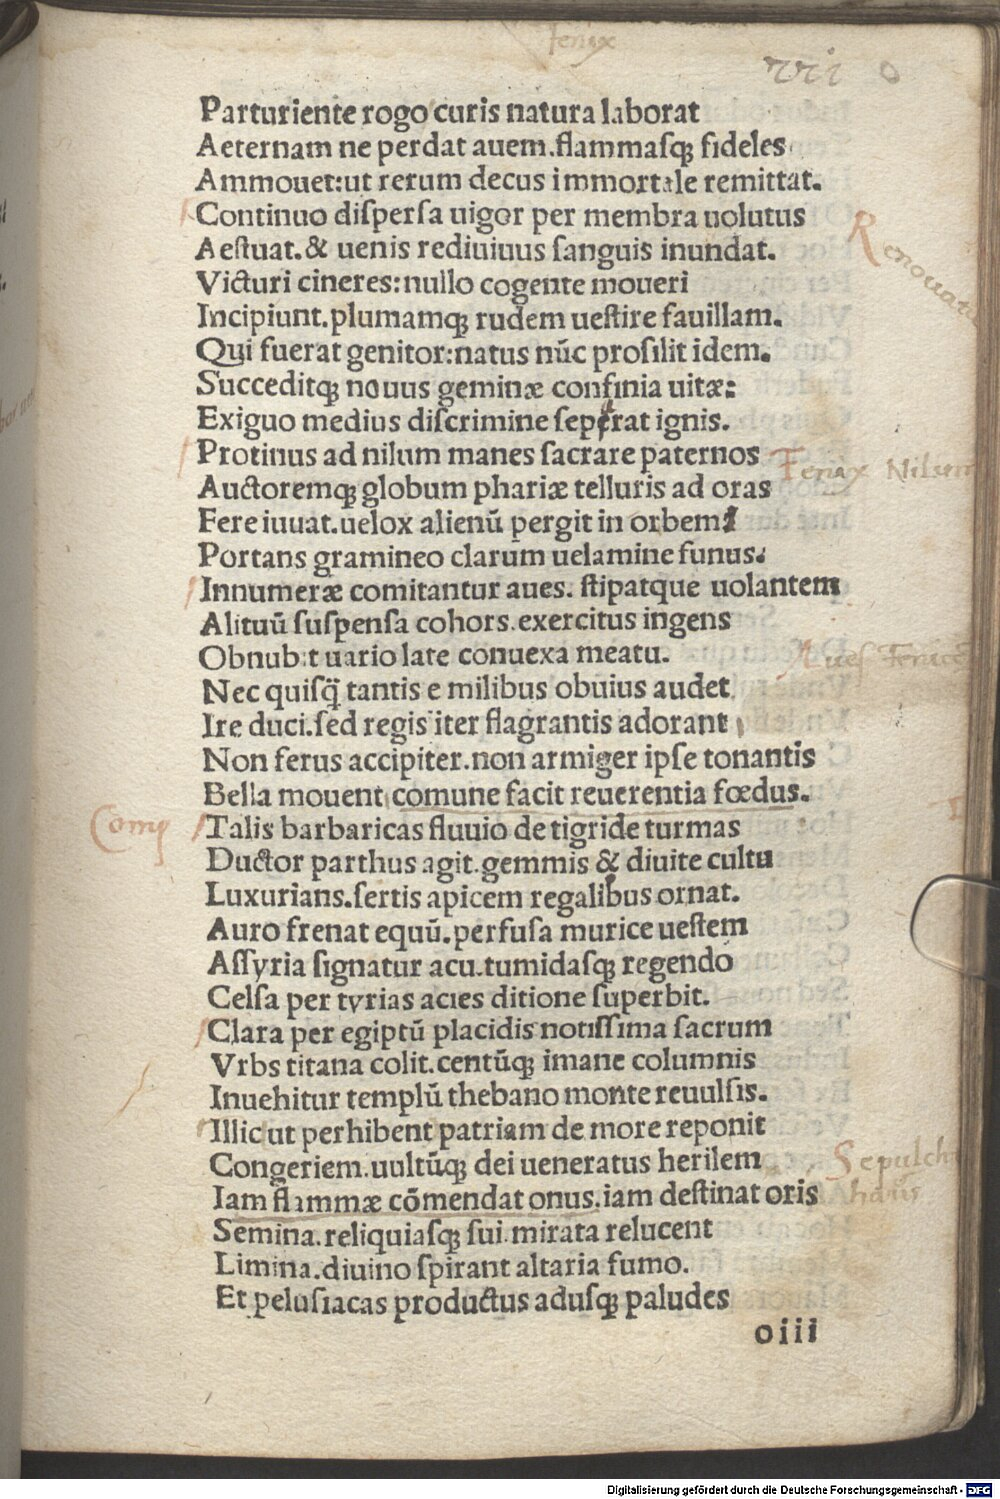 fenix
vii
Parturiente rogo curis natura laborat
Aeternam ne perdat auem.flammaſqꝫ fideles
Ammouet:ut rerum decus immortale remittat.
Continuo diſperſa uigor per membra uolutus
Renouatio
Aeſtuat.& uenis rediuiuus ſanguis inundat.
Victuri cineres:nullo cogente moueri
Incipiunt.plumamqꝫ rudem ueſtire fauillam.
Qui fuerat genitor:natus nūc proſilit idem.
Succeditqꝫ nouus geminæ confinia uitæ:
Exiguo medius diſcrimine ſeperat ignis.
Protinus ad nilum manes ſacrare paternos
Fenax Nilum
Auctoremqꝫ globum phariæ telluris ad oras
Fere iuuat.uelox alienū pergit in orbem:
Portans gramineo clarum uelamine funus.
Innumeræ comitantur aues. ſtipatque uolantem
Alituū ſuſpenſa cohors.exercitus ingens
Obnubit uario late conuexa meatu.
Aues Fenice
Nec quiſq̄ tantis e milibus obuius audet
Ire duci.ſed regis iter flagrantis adorant
Non ferus accipiter.non armiger ipſe tonantis
Bella mouent comune facit reuerentia fœdus.
Comp
Talis barbaricas fluuio de tigride turmas
Ductor parthus agit.gemmis & diuite cultu
Luxurians.ſertis apicem regalibus ornat.
Auro frenat equū.perfuſa murice ueſtem
Aſſyria ſignatur acu.tumidaſqꝫ regendo
Celſa per tyrias acies ditione ſuperbit.
Clara per egiptū placidis notiſſima ſacrum
Vrbs titana colit.centūqꝫ imane columnis
Inuehitur templū thebano monte reuulſis.
Illic ut perhibent patriam de more reponit
Congeriem.uultūqꝫ dei ueneratus herilem
Sepulchr
Iam flammæ cōmendat onus.iam deſtinat oris
Semina.reliquiaſqꝫ ſui.mirata relucent
Limina.diuino ſpirant altaria fumo.
Et peluſiacas productus aduſqꝫ paludes
oiii
Digitalisierung gefördert durch die Deutsche Forschungsgemeinschaft - DFG